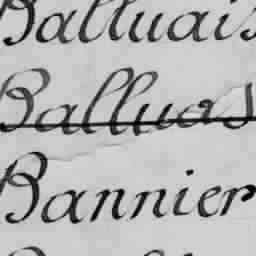 Balluais
Balluas
Bannier